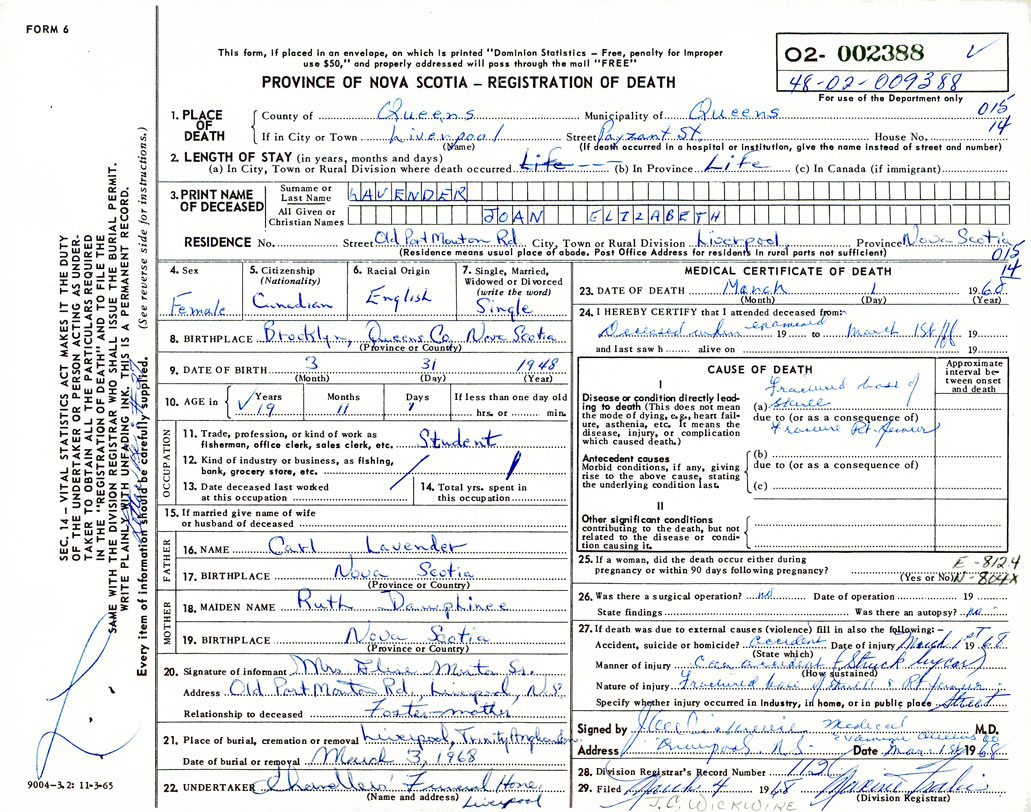 FORM 6
This form, if placed in an envelope, on which is printed "Dominion Statistics – Free, penalty for improper
use $50," and properly addressed will pass through the mail "FREE"
PROVINCE OF NOVA SCOTIA – REGISTRATION OF DEATH
02- 002388
48-02-009388
For use of the Department only
015
14
1. PLACE OF DEATH
County of Queens Municipality of Queens
If in City or Town Liverpool Street Payzant St House No.
(Name) (If death occurred in a hospital or institution, give the name instead of street and number)
2. LENGTH OF STAY (in years, months and days)
(a) In City, Town or Rural Division where death occurred Life (b) In Province Life (c) In Canada (if immigrant)
3. PRINT NAME OF DECEASED
Surname or Last Name LAVENDER
All Given or Christian Names JOAN ELIZABETH
RESIDENCE No. Street Old Port Mouton Rd City, Town or Rural Division Liverpool Province Nova Scotia
(Residence means usual place of abode. Post Office Address for residents in rural parts not sufficient)
015
14
4. Sex
Female
5. Citizenship (Nationality)
Canadian
6. Racial Origin
English
7. Single, Married, Widowed or Divorced (write the word)
Single
8. BIRTHPLACE Brooklyn, Queens Co, Nova Scotia
(Province or Country)
9. DATE OF BIRTH 3 31 1948
(Month) (Day) (Year)
10. AGE in Years Months Days If less than one day old
19 11 1 hrs. or min.
OCCUPATION
11. Trade, profession, or kind of work as
fisherman, office clerk, sales clerk, etc. Student
12. Kind of industry or business, as fishing,
bank, grocery store, etc.
13. Date deceased last worked
at this occupation
14. Total yrs. spent in
this occupation
15. If married give name of wife
or husband of deceased
FATHER
16. NAME Carl Lavender
17. BIRTHPLACE Nova Scotia
(Province or Country)
MOTHER
18. MAIDEN NAME Ruth Dauphinee
19. BIRTHPLACE Nova Scotia
(Province or Country)
20. Signature of informant Mrs. Sr.
Address Old Port Mouton Rd, Liverpool, N.S.
Relationship to deceased Foster-mother
21. Place of burial, cremation or removal Liverpool, Trinity Anglican
Date of burial or removal March 3, 1968
22. UNDERTAKER Funeral Home,
(Name and address) Liverpool
MEDICAL CERTIFICATE OF DEATH
23. DATE OF DEATH March 1 1968
(Month) (Day) (Year)
24. I HEREBY CERTIFY that I attended deceased from:
Deceased when examined 19 to March 1st 19
and last saw h alive on 19
CAUSE OF DEATH
Approximate interval between onset and death
I
Disease or condition directly leading
to death (This does not mean
the mode of dying, e.g., heart failure,
asthenia, etc. It means the
disease, injury, or complication
which caused death.)
(a) Fractured base of skull
due to (or as a consequence of)
Fracture Rt. femur
Antecedent causes
Morbid conditions, if any, giving
rise to the above cause, stating
the underlying condition last.
(b)
due to (or as a consequence of)
(c)
II
Other significant conditions
contributing to the death, but not
related to the disease or condition
causing it.
25. If a woman, did the death occur either during
pregnancy or within 90 days following pregnancy?
(Yes or No)
E-812.4
N-804X
26. Was there a surgical operation? no Date of operation 19
State findings Was there an autopsy? no
27. If death was due to external causes (violence) fill in also the following:–
Accident, suicide or homicide? accident Date of injury March 1st 1968
(State which)
Manner of injury Car accident (Struck by car)
(How sustained)
Nature of injury Fractured base of skull & Rt femur
Specify whether injury occurred in Industry, in home, or in public place Street
Signed by Medical Examiner Queens Co M.D.
Address Liverpool N.S. Date Mar. 1st 1968
28. Division Registrar's Record Number
29. Filed March 4 1968
(Division Registrar)
J.C. WICKWIRE
SEC. 14 – VITAL STATISTICS ACT MAKES IT THE DUTY
OF THE UNDERTAKER OR PERSON ACTING AS UNDERTAKER
TO OBTAIN ALL THE PARTICULARS REQUIRED
IN THE "REGISTRATION OF DEATH" AND TO FILE THE
SAME WITH THE DIVISION REGISTRAR WHO SHALL ISSUE THE BURIAL PERMIT.
WRITE PLAINLY WITH UNFADING INK. THIS IS A PERMANENT RECORD.
Every item of information should be carefully supplied. (See reverse side for instructions.)
9004-3.2: 11-3-65